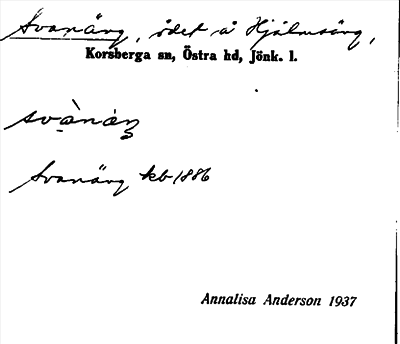 Svanäng, ödet å Hjälmsäng,
Korsberga sn, Östra hd, Jönk. l.
svànàŋ
Svanäng kb 1886
Annalisa Anderson 1937